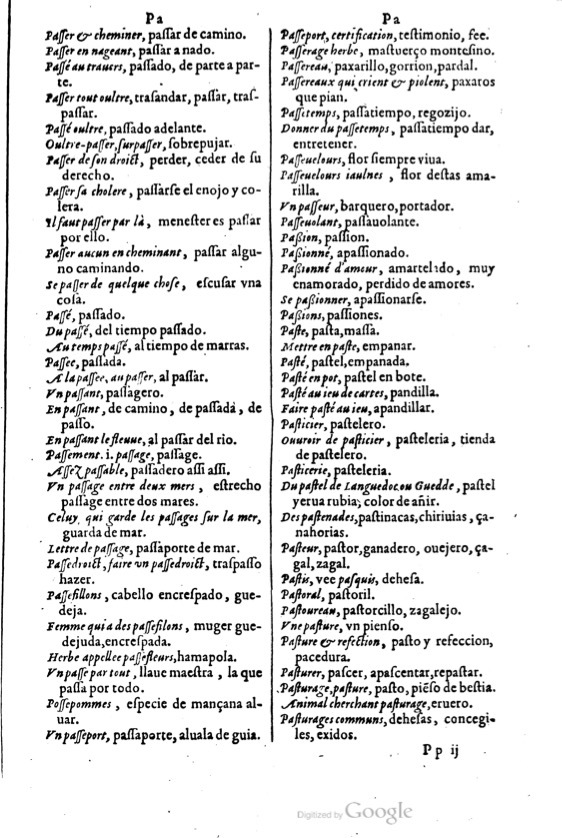 Pa
Paſſer & cheminer, paſſar de camino.
Paſſer en nageant, paſſar a nado.
Paſſé au trauers, paſſado, de parte a par-
te.
Paſſer tout oultre, traſandar, paſſar, traſ-
paſſar.
Paſſé oultre, paſſado adelante.
Oultre-paſſer, ſurpaſſer, ſobrepujar.
Paſſer de ſon droict, perder, ceder de ſu
derecho.
Paſſer ſa cholere, paſſarſe el enojo y co-
lera.
Il faut paſſer par là, meneſter es paſſar
por ello.
Paſſer aucun en cheminant, paſſar algu-
no caminando.
Se paſſer de quelque choſe, eſcuſar vna
coſa.
Paſſé, paſſado.
Du paſſé, del tiempo paſſado.
Au temps paſſé, al tiempo de marras.
Paſſee, paſſada.
A la paſſee, au paſſer, al paſſar.
Vn paſſant, paſſagero.
En paſſant, de camino, de paſſada, de
paſſo.
En paſſant le fleuue, al paſſar del rio.
Paſſement. i. paſſage, paſſage.
Aſſez paſſable, paſſadero aſſi aſſi.
Vn paſſage entre deux mers, eſtrecho
paſſage entre dos mares.
Celuy qui garde les paſſages ſur la mer,
guarda de mar.
Lettre de paſſage, paſſaporte de mar.
Paſſedroict, faire vn paſſedroict, traſpaſſo
hazer.
Paſſefillons, cabello encreſpado, gue-
deja.
Femme qui a des paſſefilons, muger gue-
dejuda, encreſpada.
Herbe appellee paſſefleurs, hamapola.
Vn paſſe par tout, llaue maeſtra, la que
paſſa por todo.
Poſſepommes, eſpecie de mançana al-
uar.
Vn paſſeport, paſſaporte, aluala de guia.
Pa
Paſſeport, certification, teſtimonio, fee.
Paſſerage herbe, maſtuerço monteſino.
Paſſereau, paxarillo, gorrion, pardal.
Paſſereaux qui crient & piolent, paxaros
que pian.
Paſſetemps, paſſatiempo, regozijo.
Donner du paſſetemps, paſſatiempo dar,
entretener.
Paſſeuelours, flor ſiempre viua.
Paſſeuelours iaulnes, flor deſtas ama-
rilla.
Vn paſſeur, barquero, portador.
Paſſeuolant, paſſauolante.
Paßion, paſſion.
Paßionné, apaſſionado.
Paßionné d'amour, amartelado, muy
enamorado, perdido de amores.
Se paßionner, apaſſionarſe.
Paßions, paſſiones.
Paſte, paſta, maſſa.
Mettre en paſte, empanar.
Paſté, paſtel, empanada.
Paſté en pot, paſtel en bote.
Paſté au ieu de cartes, pandilla.
Faire paſté au ieu, apandillar.
Paſticier, paſtelero.
Ouuroir de paſticier, paſteleria, tienda
de paſtelero.
Paſticerie, paſteleria.
Du paſtel de Languedoc ou Guedde, paſtel
yerua rubia, color de añir.
Des paſtenades, paſtinacas, chiriuias, ça-
nahorias.
Paſteur, paſtor, ganadero, ouejero, ça-
gal, zagal.
Paſtis, vee paſquis, deheſa.
Paſtoral, paſtoril.
Paſtoureau, paſtorcillo, zagalejo.
Vne paſture, vn pienſo.
Paſture & refection, paſto y refeccion,
pacedura.
Paſturer, paſcer, apaſcentar, repaſtar.
Paſturage, paſture, paſto, piẽſo de beſtia.
Animal cherchant paſturage, eruero.
Paſturages communs, deheſas, concegi-
les, exidos.
P p ij
Digitized by Google